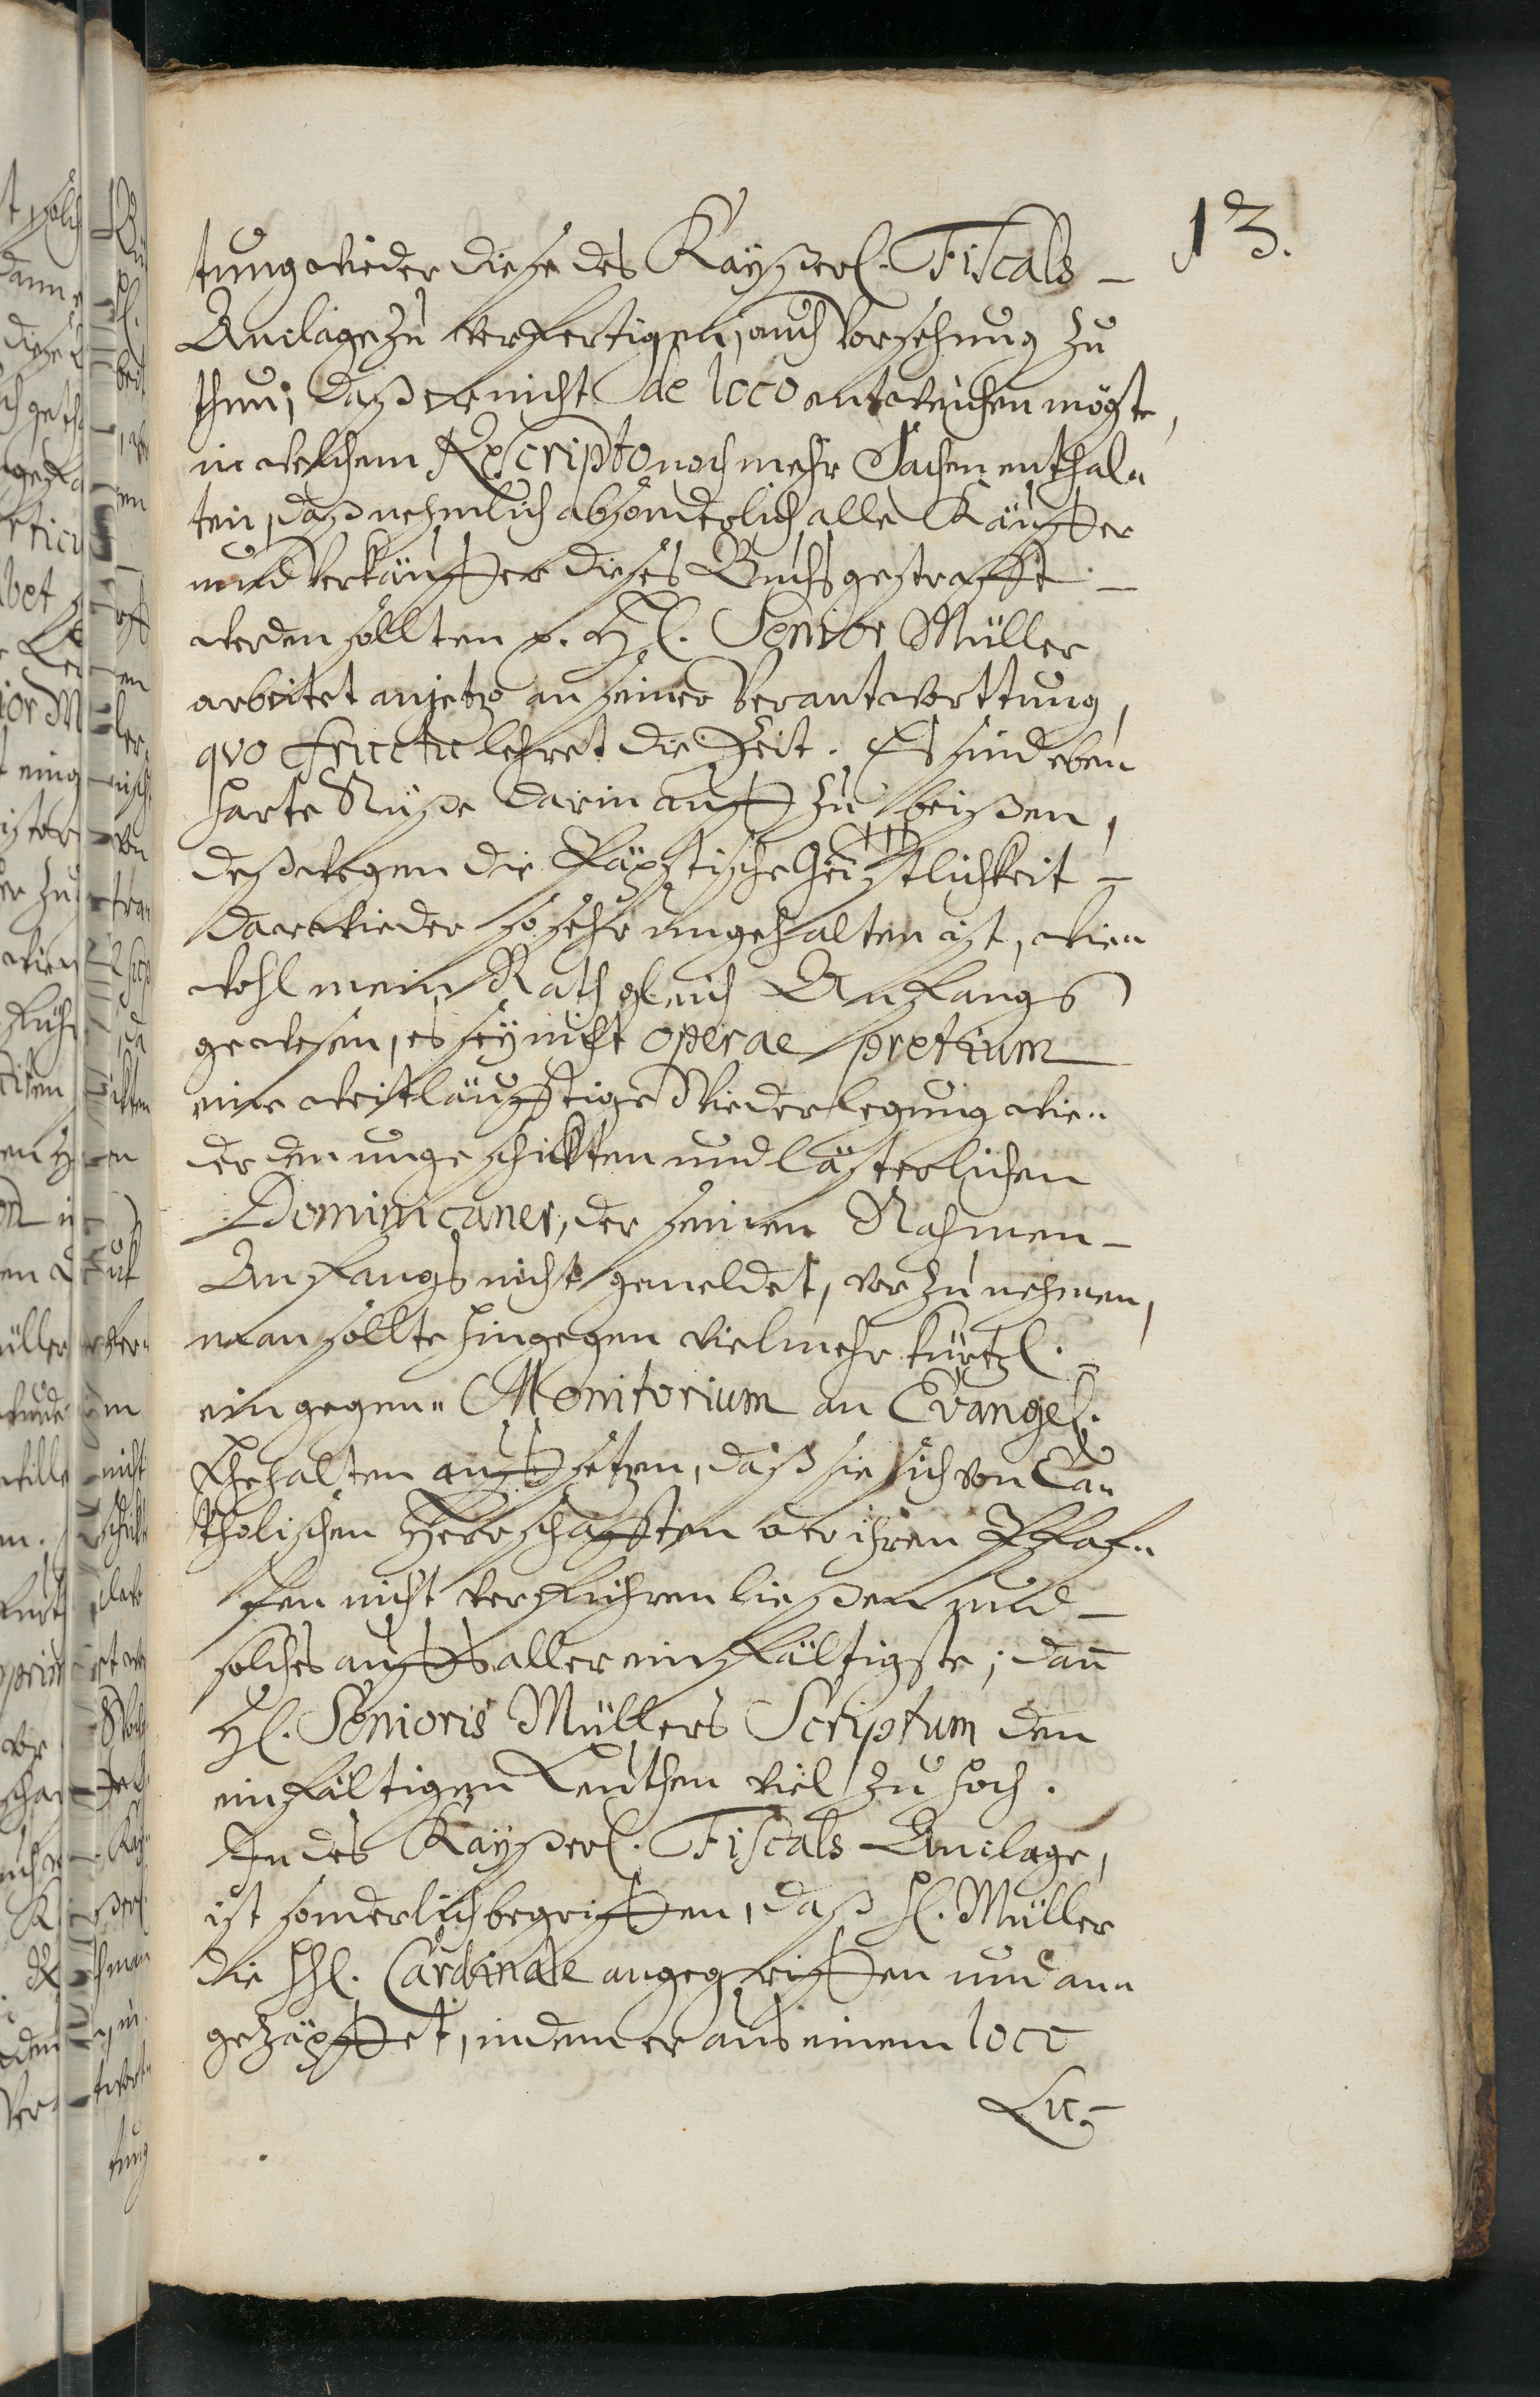 13.
tung wieder diese des Kayßerl. Fiscals
Anclage zu verfertigen, auch Vorsehung zu
thun, daß er nicht de loco entweichen mögte,
in welchem Rescripto noch mehr Sachen enthal-
ten, daß nehmlich absonderlich alle Käuffer
und Verkäuffer dieses Buchs gestrafft
werden sollten p. H. Senior Müller
arbeitet anjetzo an seiner Verantworttung,
qvo fructu lehret die Zeit. Es sind eben
harte Nüße darin auff zu beißen,
deßwegen die Päpstische Geistlichkeit
darwieder so sehr ungehalten ist, wie-
wohl mein Rath gleich Anfangs
gewesen, es sey nicht operae pretium
eine weitläufftige Wiederlegung wie-
der den ungeschickten und lästerlichen
Dominicaner, der seinen Nahmen
Anfangs nicht gemeldet, vorzunehmen,
man sollte hingegen vielmehr kürtzl.
ein gegen- Monitorium an Evangel.
Ehehalten auffsetzen, daß sie sich von Ca-
tholischen Herrschafften oder ihren Pfaf-
fen nicht verführen ließen und
solches auffs aller einfältigste; dann
H. Senioris Müllers Scriptum den
einfältigen Leuthen viel zu hoch.
In des Kayßerl. Fiscals Anclage,
ist sonderlich begriffen, daß H. Müller
die HH. Cardinäle angegriffen und an-
gezäpffet, indem er aus einem loco
Lu-